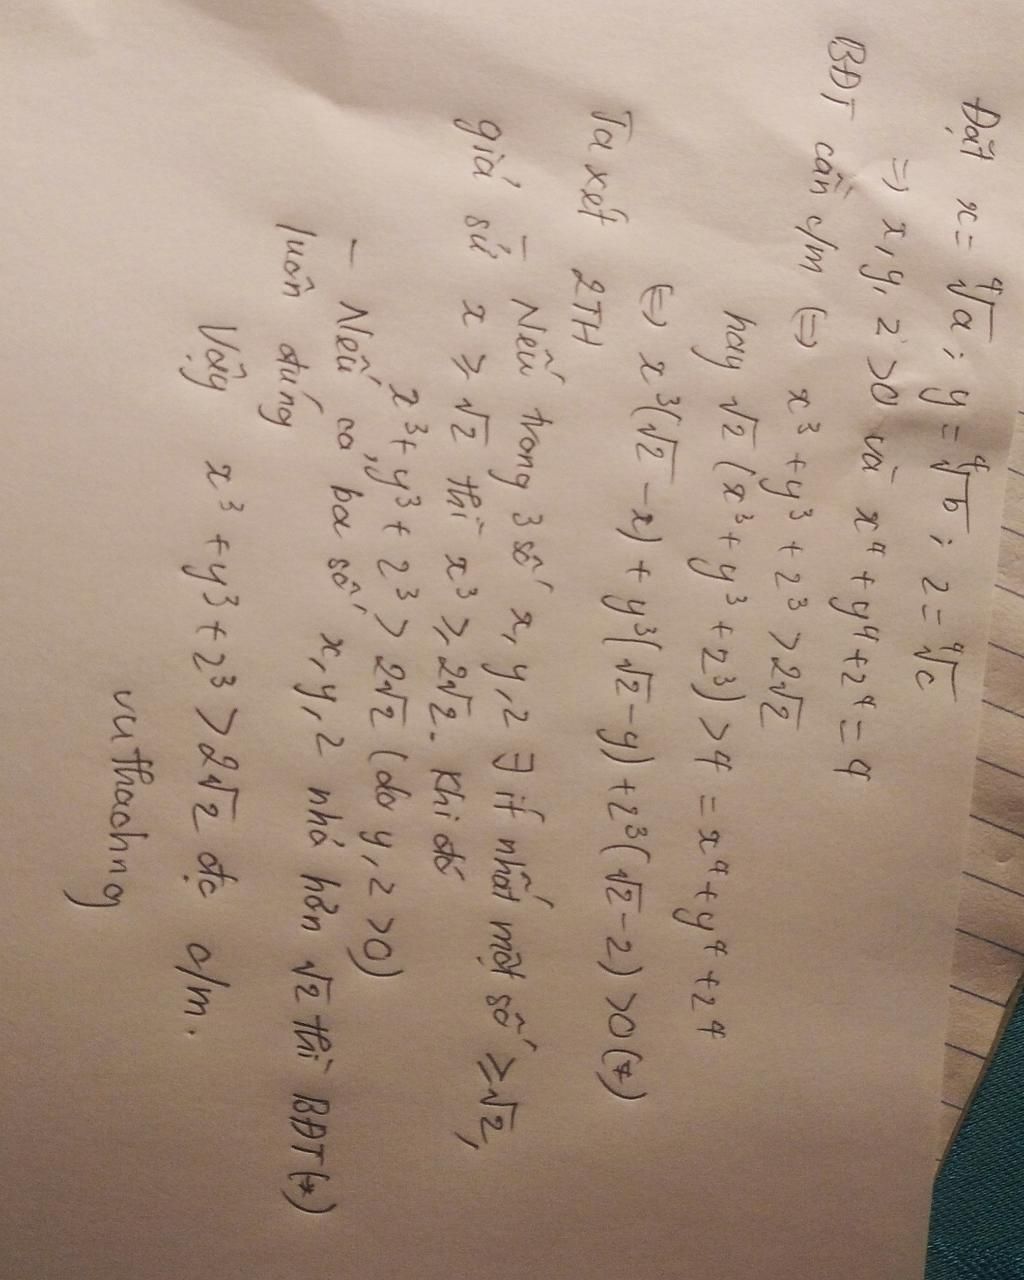 Đặt x = ⁴√a ; y = ⁴√b ; z = ⁴√c
=> x, y, z > 0 và x⁴ + y⁴ + z⁴ = 4
BĐT cần c/m <=> x³ + y³ + z³ > 2√2
hay √2 (x³ + y³ + z³) > 4 = x⁴ + y⁴ + z⁴
<=> x³(√2 - x) + y³(√2 - y) + z³(√2 - z) > 0 (*)
Ta xét 2TH
- Nếu trong 3 số x, y, z ∃ ít nhất một số ≥ √2,
giả sử x ≥ √2 thì x³ ≥ 2√2. Khi đó
x³ + y³ + z³ > 2√2 (do y, z > 0)
- Nếu cả ba số x, y, z nhỏ hơn √2 thì BĐT (*)
luôn đúng
Vậy x³ + y³ + z³ > 2√2 đc c/m.
vuthachng